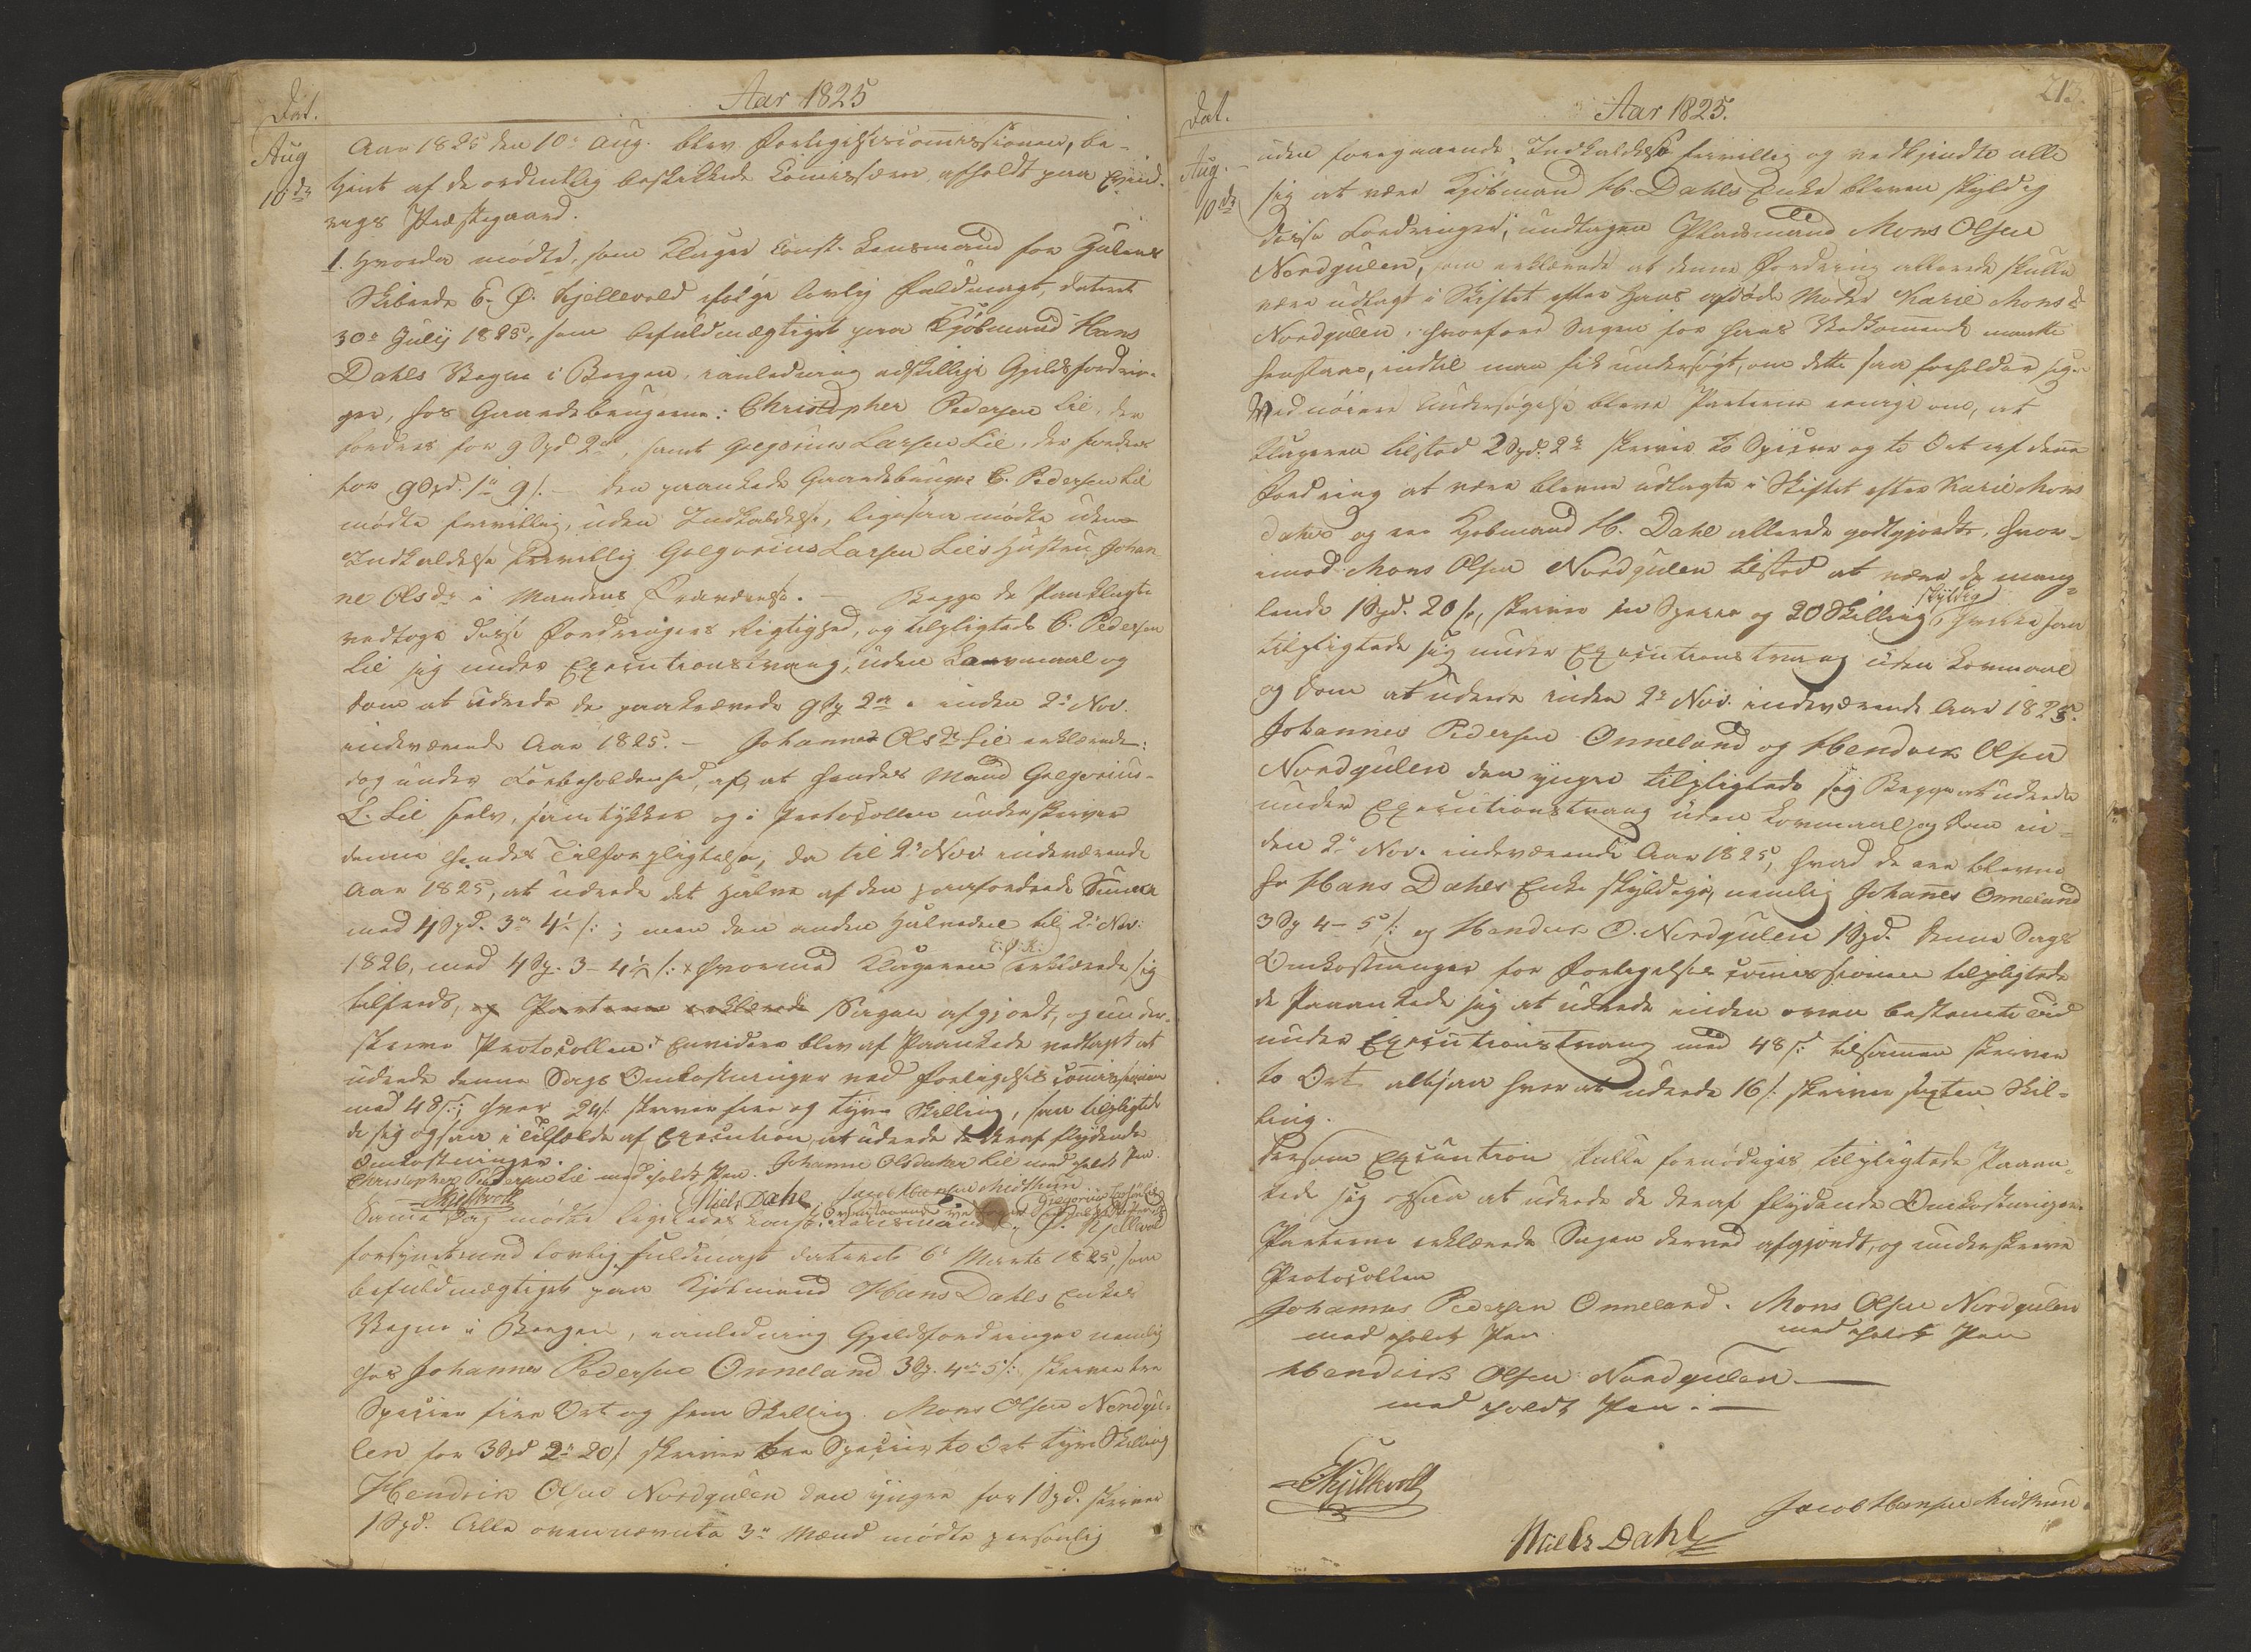 Dat.
Aar 1825
Aug
10de
Aar 1825 den 10de Aug. blev Forligelsescommissionen, be-
tjent af de ordentlig beskikkede Commissærer afholdt paa Evind-
vigs Præstegaard.
1. Hvorda mødte, som Klager Const. Lensmand for Gulens
Skibrede E. O. Kjellevold ifølge lovlig Fuldmagt, dateret
30e Julij 1825, som befuldmægtiget paa Kjøbmand Hans
Dahls Vegne i Bergen, i anledning adskillige Gjeldsfordrin-
ger, hos Gaardebrugerne: Christopher Pedersen Lie, der
fordres for 9 Spd 2 ort, samt Gregorius Larsen Lie, der fordres
for 9 Spd. 1 ort 9 s. – den paankede Gaardebruger C. Pedersen Lie
mødte frivillig, uden Indkaldelse, ligesaa mødte uden
Indkaldelse frivillig Gregorius Larsen Lies Hustru Johan-
ne Olsdr i Mandens Fraværelse. – Begge de Paaklagte
vedtoge disse Fordringers Rigtighed, og tilpligtede C. Pedersen
Lie sig under Executionstvang, uden Lavmaal og
Dom at udrede de paakrævede 9 Sp 2 ort inden 2de Nov.
indeværende Aar 1825. – Johanne Olsdr Lie erklærede:
dog under Forbeholdenhed, af, at hendes Mand Gregorius
L. Lie selv, samtykker og i Protocollen underskriver
denne hendes Tilforpligtelse, da til 2de Nov. indeværende
Aar 1825, at udrede det Halve af den paafordrede Summa
med 4 Spd. 3 ort 4½ s.; men den anden Halvedeel til 2de Nov:
1826, med 4 Sp. 3 – 4½ s. hvormed Klageren erklærede sig
tilfreds, og Parterne erklærede Sagen afgjordt, og under-
skreve Protocollen. Envidere blev af Paankede vedtaget at
udrede denne Sags Omkostninger ved Forligelses Commissionen
med 48 s.; hver 24 s. skriver fire og tyve Skilling, saa tilpligtede
de sig ogsaa i Tilfælde af Execution, at udrede de deraf flydende
Omkostninger.
Christopher Pedersen Lie med holdt Pen. Johanne Olsdatter Lie med holdt Pen.
Kjellevold Niels Dahl Jacob Hansen Midthun
Samme Dag mødte ligeledes Const. Lensmand E. O. Kjellevold
forsynet med lovlig Fuldmagt dateret 6te Marts 1825, som
befuldmægtiget paa Kjøbmand Hans Dahls Enkes
Vegne i Bergen, i anledning Gjeldsfordringer nemlig
hos Johannes Pedersen Onneland 3 Sp. 4 ort 5 s. skriver tre
Specier fire Ort og fem Skilling. Mons Olsen Nordgu-
len for 3 Spd 2 ort 20 s skriver tre Specier, to Ort tyve Skilling
Hendrik Olsen Nordgulen den yngre for 1 Spd. skriver
1 Spd. Alle ovennævnte 3de Mænd mødte personlig
Dat.
Aar 1825.
213.
Aug.
10de
uden foregaaende Indkaldelse frivillig og vedkjendte alle
sig at være Kjøbmand H. Dahls Enke bleven skyldig
disse Fordringer, undtagen Pladsmand Mons Olsen
Nordgulen, som erklærede at denne Fordring allerede skulle
være udlagt i Skiftet efter hans afdøde Moder Karie Monsdr
Nordgulen, hvorfore Sagen for hans Vedkommende maatte
henstaae, indtil man fik undersøgt, om dette saa forholder sig.
Ved nøiere Undersøgelse bleve Parterne enige om, at
Klageren tilstod 2 Spd. 2 ort skriver to Specier og to Ort af denne
Fordring at være blevne udlagte i Skiftet efter Karie Mons
datter og ere Kjøbmand H. Dahl allerede godtgjordte, hvor-
imod Mons Olsen Nordgulen tilstod at være de mang-
lende 1 Spd. 20 s, skriver en Specie og 20 Skilling skyldig, hvilke han
tilpligtede sig under Executionstvang uden Lovmaal
og Dom at udrede inden 2de Nov. indeværende Aar 1825.
Johannes Pedersen Onneland og Hendrik Olsen
Nordgulen den yngre tilpligtede sig Begge at udrede
under Executionstvang uden Lovmaal og Dom in-
den 2de Nov. indeværende Aar 1825, hvad de ere blevne
Hr Hans Dahls Enke skyldige, nemlig Johannes Onneland
3 Sp 4 – 5 s: og Hendrik O. Nordgulen 1 Spd. Denne Sags
Omkostninger for Forligelses Commissionen tilpligtede
de Paaankede sig at udrede inden oven bestemte Tid
under Executionstvang med 48 s. tilsammen skriver
to Ort altsaa hver at udrede 16 s. skriver sexten Skil-
ling.
Dersom Execution skulle fornødiges tilpligtede Paaan-
kede sig ogsaa at udrede de deraf flydende Omkostninger.
Parterne erklærede Sagen derved afgjordt, og underskreve
Protocollen
Johannes Pedersen Onneland. Mons Olsen Nordgulen
med holdt Pen. med holdt Pen
Hendrik Olsen Nordgulen.
med holdt Pen.
Kjellevold
Jacob Hansen Midthun
Niels Dahl